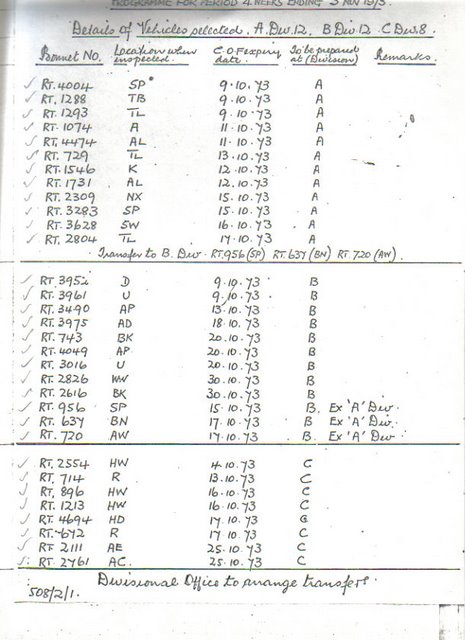 PROGRAMME FOR PERIOD 4 WEEKS ENDING 3 NOV 1973
Details of Vehicles selected. A. Div. 12. B Div 12. C Div. 8.
Bonnet No. Location when inspected. C.O.F expiry date. To be prepared at (Division) Remarks.
✓ RT. 4004 SP 9.10.73 A
✓ RT. 1288 TB 9.10.73 A
✓ RT. 1293 TL 9.10.73 A
✓ RT. 1074 A 11.10.73 A
✓ RT. 4474 AL 11.10.73 A
✓ RT. 729 TL 13.10.73 A
✓ RT. 1546 K 12.10.73 A
✓ RT. 1731 AL 12.10.73 A
✓ RT. 2309 NX 15.10.73 A
✓ RT. 3283 SP 15.10.73 A
✓ RT. 3628 SW 16.10.73 A
✓ RT. 2804 TL 17.10.73 A
Transfer to B. Div. RT.956 (SP) RT.637 (BN) RT 720 (AW)
✓ RT. 3952 D 9.10.73 B
✓ RT. 3961 U 9.10.73 B
✓ RT. 3490 AP 13.10.73 B
✓ RT. 3975 AD 18.10.73 B
✓ RT. 743 BK 20.10.73 B
✓ RT. 4049 AP 20.10.73 B
✓ RT. 3016 U 20.10.73 B
✓ RT. 2826 WW 30.10.73 B
✓ RT. 2616 BK 30.10.73 B
✓ RT. 956 SP 15.10.73 B. Ex 'A' Div.
✓ RT. 637 BN 17.10.73 B Ex 'A' Div.
✓ RT. 720 AW 17.10.73 B Ex 'A' Div
✓ RT. 2554 HW 4.10.73 C
✓ RT. 714 R 13.10.73 C
✓ RT. 896 HW 16.10.73 C
✓ RT. 1213 HW 16.10.73 C
✓ RT. 4694 HD 17.10.73 C
✓ RT. 672 R 17.10.73 C
✓ RT. 2111 AE 25.10.73 C
✓ RT. 2761 AC. 25.10.73 C
Divisional Office to arrange transfers.
508/2/1.